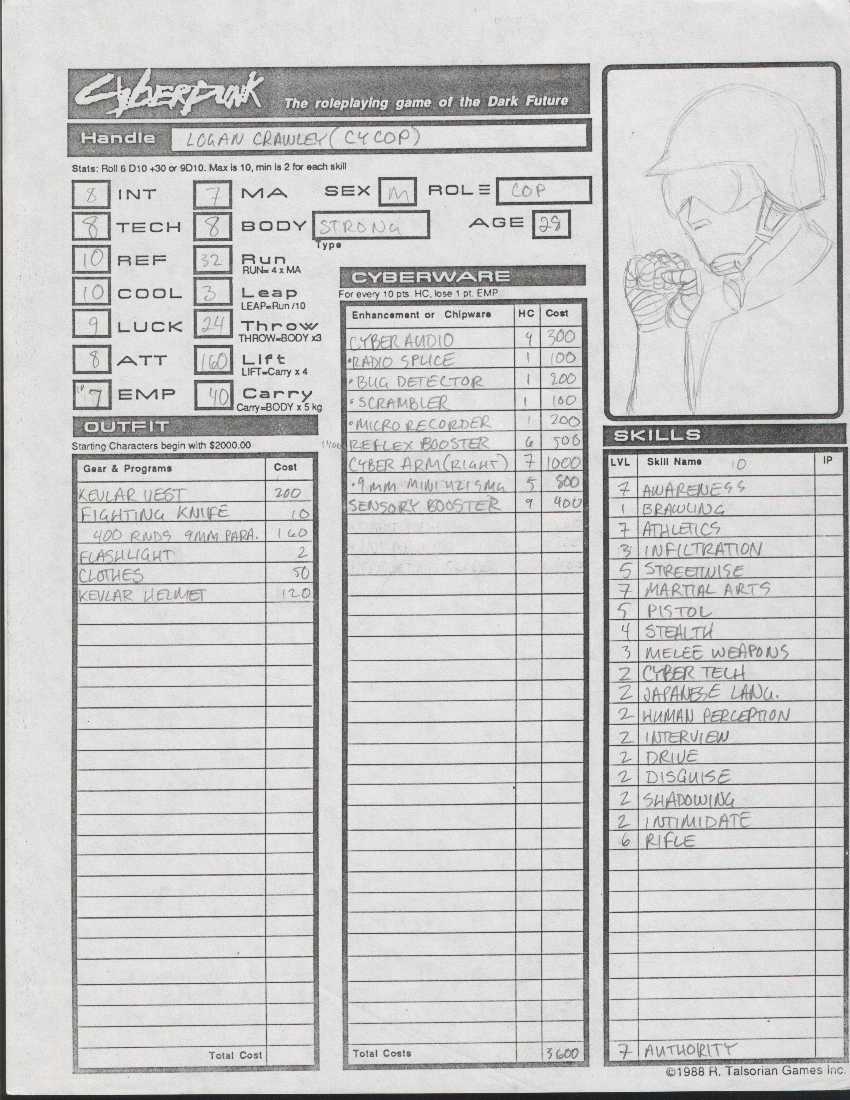 CYBERPUNK The roleplaying game of the Dark Future
Handle LOGAN CRAWLEY (CYCOP)
Stats: Roll 6 D10 +30 or 9D10. Max is 10, min is 2 for each skill
8 INT 7 MA SEX M ROLE COP
8 TECH 8 BODY STRONG AGE 28
Type
10 REF 32 Run
RUN= 4 x MA
10 COOL 3 Leap
LEAP=Run /10
9 LUCK 24 Throw
THROW=BODY x3
8 ATT 160 Lift
LIFT=Carry x 4
7 EMP 40 Carry
Carry=BODY x 5 kg
OUTFIT
Starting Characters begin with $2000.00
Gear & Programs Cost
KEVLAR VEST 200
FIGHTING KNIFE 10
400 RNDS 9MM PARA. 160
FLASHLIGHT 2
CLOTHES 50
KEVLAR HELMET 120
Total Cost
CYBERWARE
For every 10 pts. HC, lose 1 pt. EMP
Enhancement or Chipware HC Cost
CYBER AUDIO 4 300
•RADIO SPLICE 1 100
•BUG DETECTOR 1 200
•SCRAMBLER 1 100
•MICRO RECORDER 1 200
REFLEX BOOSTER 6 500
CYBER ARM (RIGHT) 7 1000
•9MM MINI UZI SMG 5 800
SENSORY BOOSTER 9 400
Total Costs 3600
SKILLS
LVL Skill Name 10 IP
7 AWARENESS
1 BRAWLING
7 ATHLETICS
3 INFILTRATION
5 STREETWISE
7 MARTIAL ARTS
5 PISTOL
4 STEALTH
3 MELEE WEAPONS
2 CYBER TECH
2 JAPANESE LANG.
2 HUMAN PERCEPTION
2 INTERVIEW
2 DRIVE
2 DISGUISE
2 SHADOWING
2 INTIMIDATE
6 RIFLE
7 AUTHORITY
©1988 R. Talsorian Games Inc.